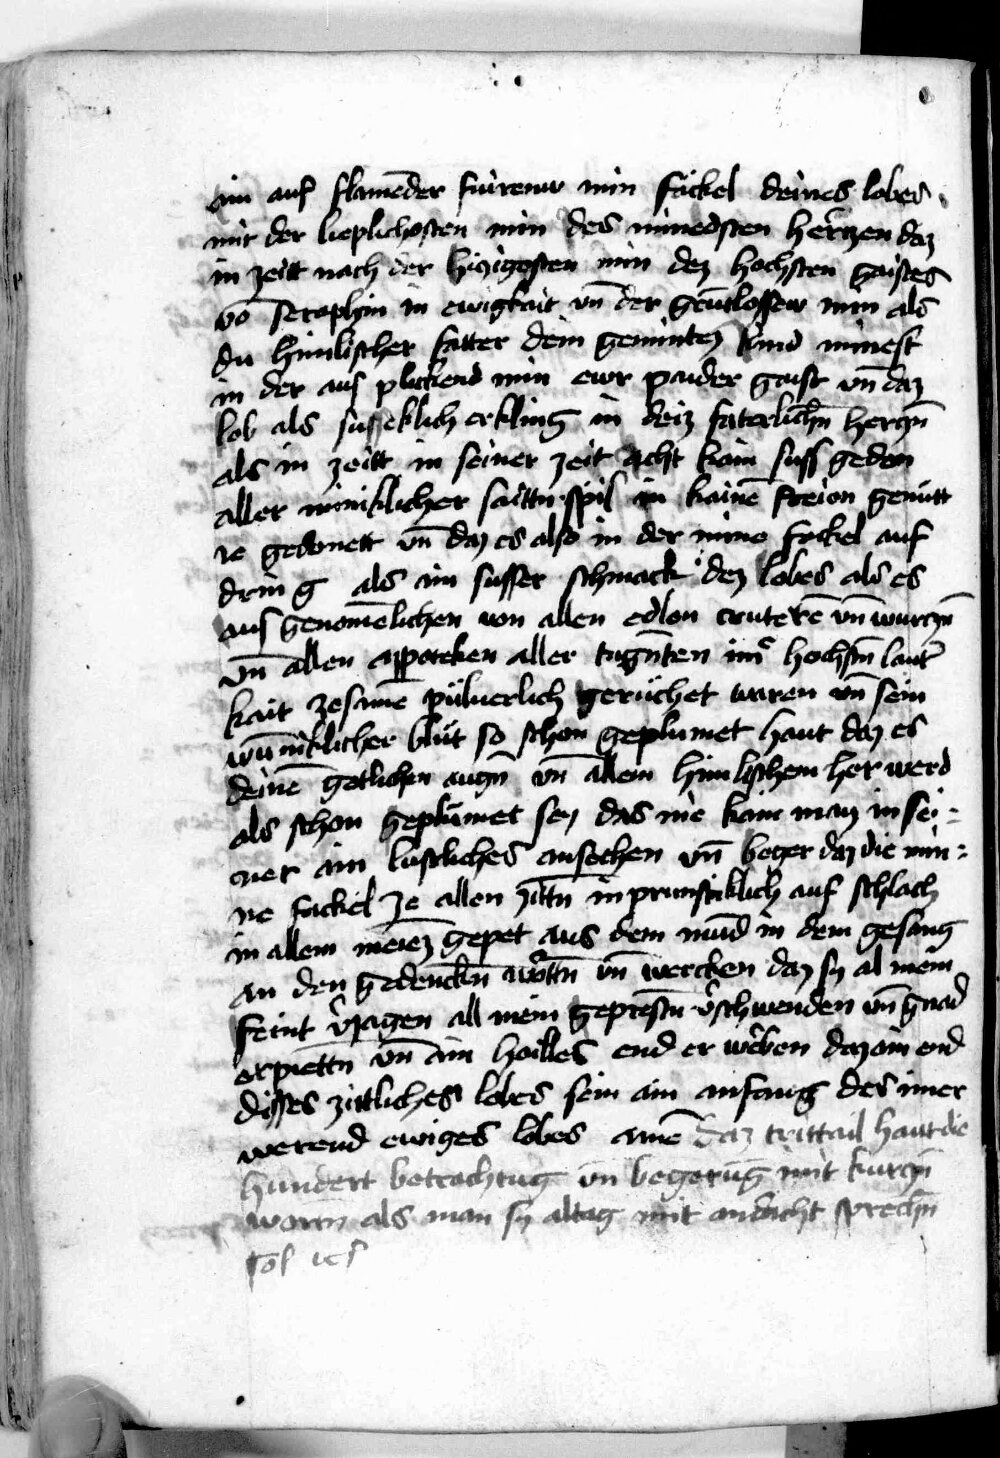 ain auf flamēder fuirenw min fackel deines lobes
mit der lieplichosten min des minnedsten hertzen daz
in zeitt nach der hitzigosten min dez hochsten gaistes
vō seraphin in ewigkait vn̄ der gēutlossew min als
du himlischer fatter dein geminten kind minest
in der aus plickend min ewr paider gaist vn̄ daz
lob als susseklich erkling in deiz faterlichn̄ herczn̄
als in zeitt in seiner zeit acht kain suss gedon
aller miniklicher saittn spil in kainē freion gemütt
ie gedonett vn̄ daz es also in der mine fackel auf
dring als ain susser schmack dez lobes als es
aus genomēlichen von allen edlon cruterē vn̄ wurczn̄
vn̄ allen appotecken aller tugn̄ten imͬ hochstn̄ lauter
kait zesamē pūluerlich gerüchet waren vn̄ sein
wun̄niklicher blüt so schon geplumet haut daz es
deinē getlichen augn̄ vn̄ allem himlischem her werd
als schon geplümet sej das nie kain maj in sei-
ner ain lustliches ansechen vn̄ beger daz die min-
ne fackel ze allen zittn̄ inprunstiklich auf schlach
in allem meiez gepet aus dem mūd in dem gesang
an den gedenckn̄ wortn̄ vn̄ wercken daz sy al mein
feint v̾jagen all mein geprestn̄ v̾schwenden vn̄ gnad
erpiettn̄ vn̄ ain hailles end er weben daz ain end
disses zittliches lobes sein ain anfang des imer
werend ewiges lobes amē daz trittail haut die
hundert betrachtūg vn̄ begerūg mit kurczn̄
worrn als man sy altag mit andacht sprechn̄
sol